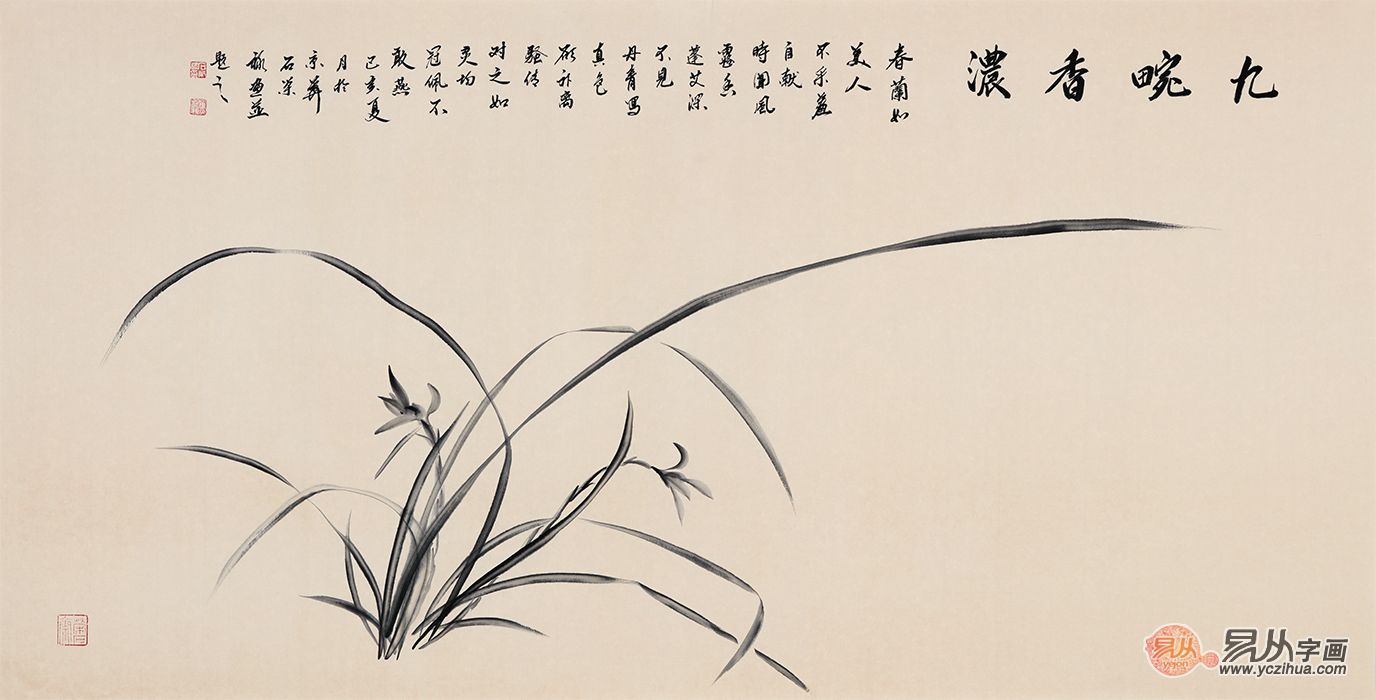 九畹香濃
春蘭如
美人
不采羞
自献
時聞風
露香
蓬艾深
不見
丹青寫
真色
欲补离
騷传
对之如
灵均
冠佩不
敢燕
己亥夏
月於
京華
石荣
禄画並
題之
易从
易从字画
www.yczihua.com